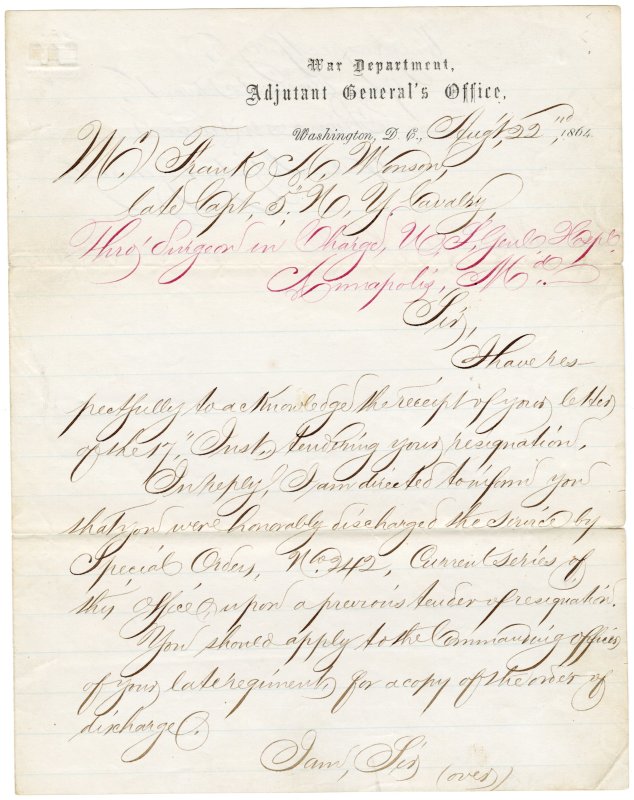 War Department,
Adjutant General's Office,
Washington, D. C., Augt, 22nd, 1864
Mr. Frank A. Monson,
late Capt, 5" N, Y. Cavalry,
Thro' Surgeon in Charge, U. S, Genl Hospl.
Annapolis, Md.
Sir,
I have res-
pectfully to acknowledge the receipt of your letter
of the 17," Inst, tendering your resignation.
In reply, I am directed to inform you
that you were honorably discharged the service by
Special Orders, No. 242, Current series of
this office upon a previous tender of resignation.
You should apply to the Commanding officer
of your late regiment, for a copy of the order of
discharge.
I am, Sir
(over)